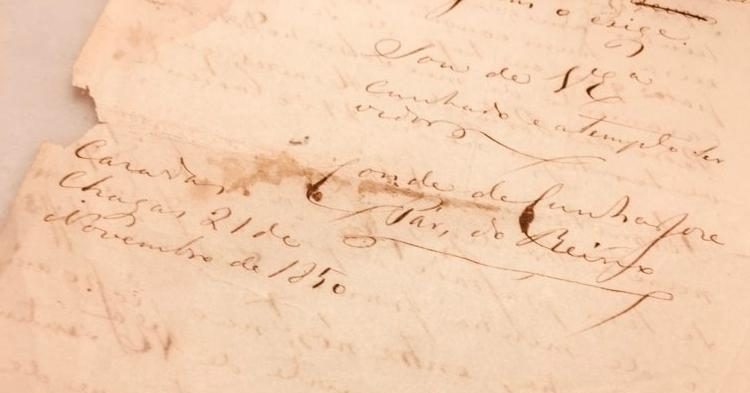 o exige.
Sou de V Exª
cunhado e attempto ser
vidor
Conde de Cunhafore
Par, do Reino
Casa das
Chagas 21 de
Novembro de 1850